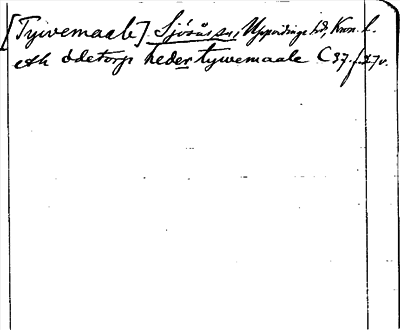 [Tyivemaale]. Sjösås sn, Uppvidinge hd, Kron. l.
eth ödetorp heder tywemaale C 37. f. 27 v.